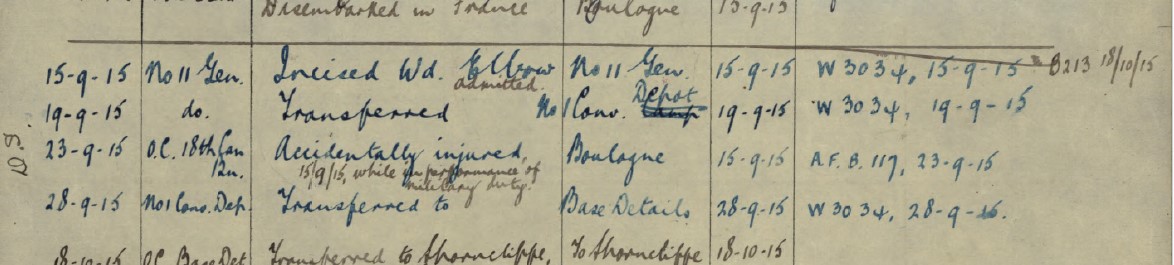 Disembarked in France Boulogne 15-9-15
15-9-15 No 11 Gen. Incised Wd. Elbow admitted. No 11 Gen. 15-9-15 W 3034, 15-9-15 B213 18/10/15
19-9-15 do. Transferred No 1 Conv. Depot Camp 19-9-15 W 3034, 19-9-15
D.I.
23-9-15 O.C. 18th Can Accidentally injured, Boulogne 15-9-15 A.F.B. 117, 23-9-15
Bn. 15/9/15, while in performance of
military duty.
28-9-15 No 1 Conv. Dep. Transferred to Base Details 28-9-15 W 3034, 28-9-15.
18-10-15 O.C. Base Det Transferred to Shorncliffe, To Shorncliffe 18-10-15